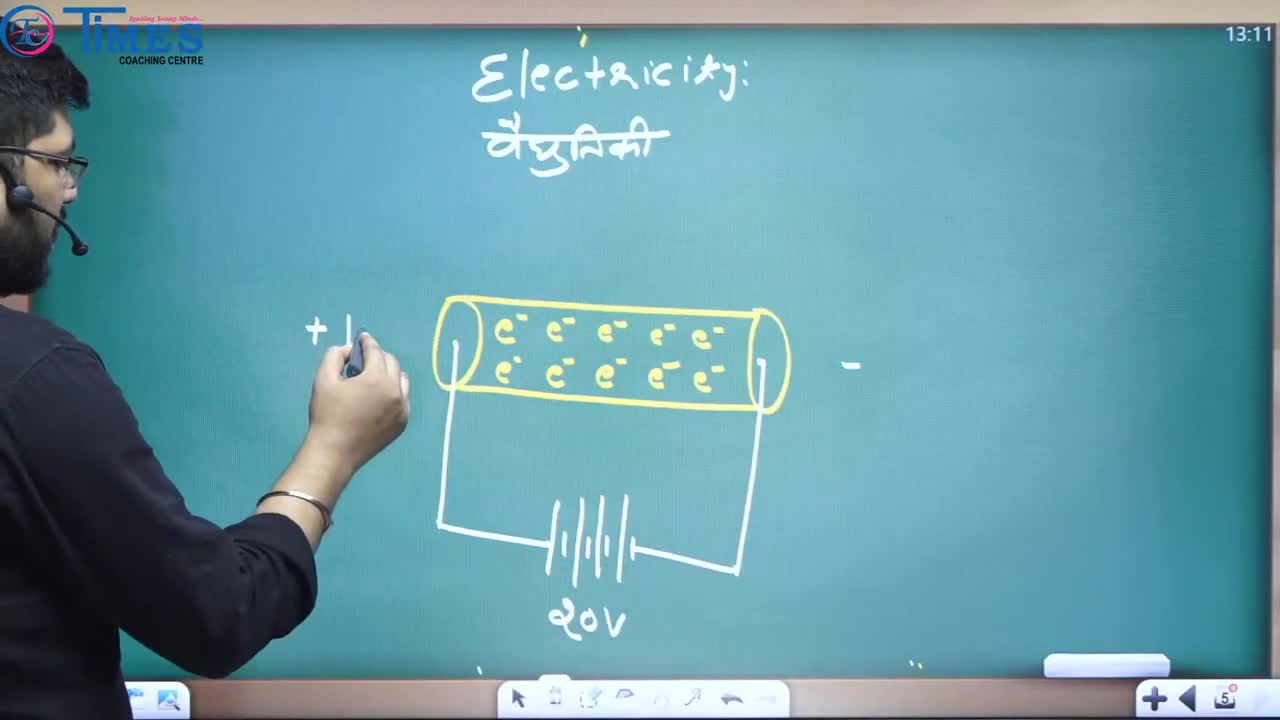 Igniting Young Minds...
TIMES
COACHING CENTRE
13:11
Electricity:
वैद्युतिकी
+ 1
e⁻ e⁻ e⁻ e⁻ e⁻
-
e⁻ e⁻ e⁻ e⁻ e⁻
20V
5